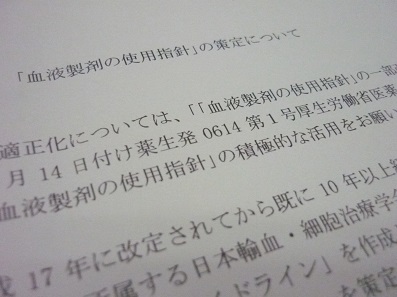 「血液製剤の使用指針」の策定について
適正化については、「「血液製剤の使用指針」の一部
月 14 日付け薬生発 0614 第 1 号厚生労働省医薬
血液製剤の使用指針」の積極的な活用をお願い
17 年に改定されてから既に 10 年以上
属する日本輸血・細胞治療学
ドライン」を作成
を策定